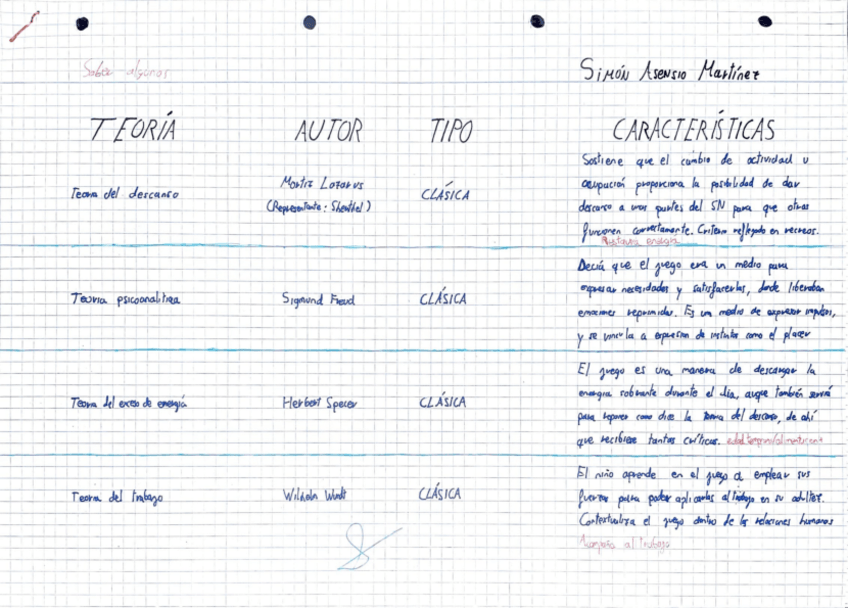 Saber algunos
SIMÓN ASENSIO MARTÍNEZ
TEORÍA AUTOR TIPO CARACTERÍSTICAS
Teoría del descanso
Moritz Lazarus
(Representante: )
CLÁSICA
Sostiene que el cambio de actividad u
ocupación proporciona la posibilidad de dar
descanso a unas partes del SN para que otras
funcionen correctamente. Criterio reflejado en recreos.
Restaura energía
Teoría psicoanalítica
Sigmund Freud
CLÁSICA
Decía que el juego era un medio para
expresar necesidades y satisfacerlas, donde liberaban
emociones reprimidas. Es un medio de expresar impulsos,
y se vincula a expresión de instintos como el placer
Teoría del exceso de energía
Herbert Specer
CLÁSICA
El juego es una manera de descargar la
energía sobrante durante el día, auque también servirá
para reponer como dice la teoría del descanso, de ahí
que recibiese tantas críticas.
Teoría del trabajo
Wilheln Wundt
CLÁSICA
El niño aprende en el juego a emplear sus
fuerzas para poder aplicarlas al trabajo en su adultez.
Contextualiza el juego dentro de las relaciones humanas
al trabajo